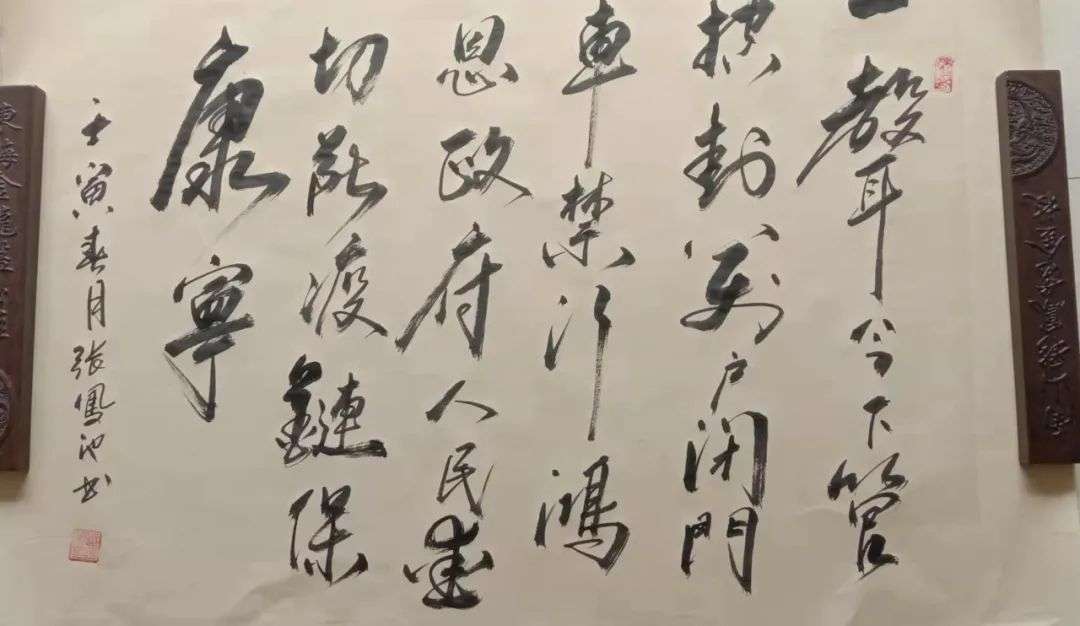 一聲令下管
控封萬户闭門
車禁行鴻
恩政府人民愛
切斷疫鏈保
康寧
壬寅春月張鳳池书